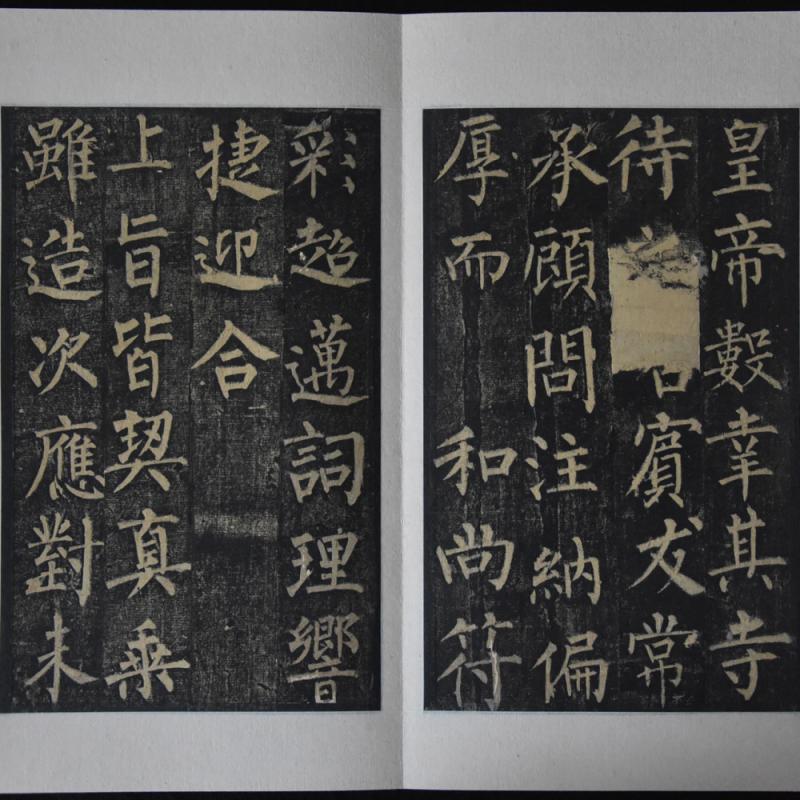 皇帝數幸其寺
待之賓友常
承顧問注納偏
厚而和尚符
彩超邁詞理響
捷迎合
上旨皆契真乘
雖造次應對未